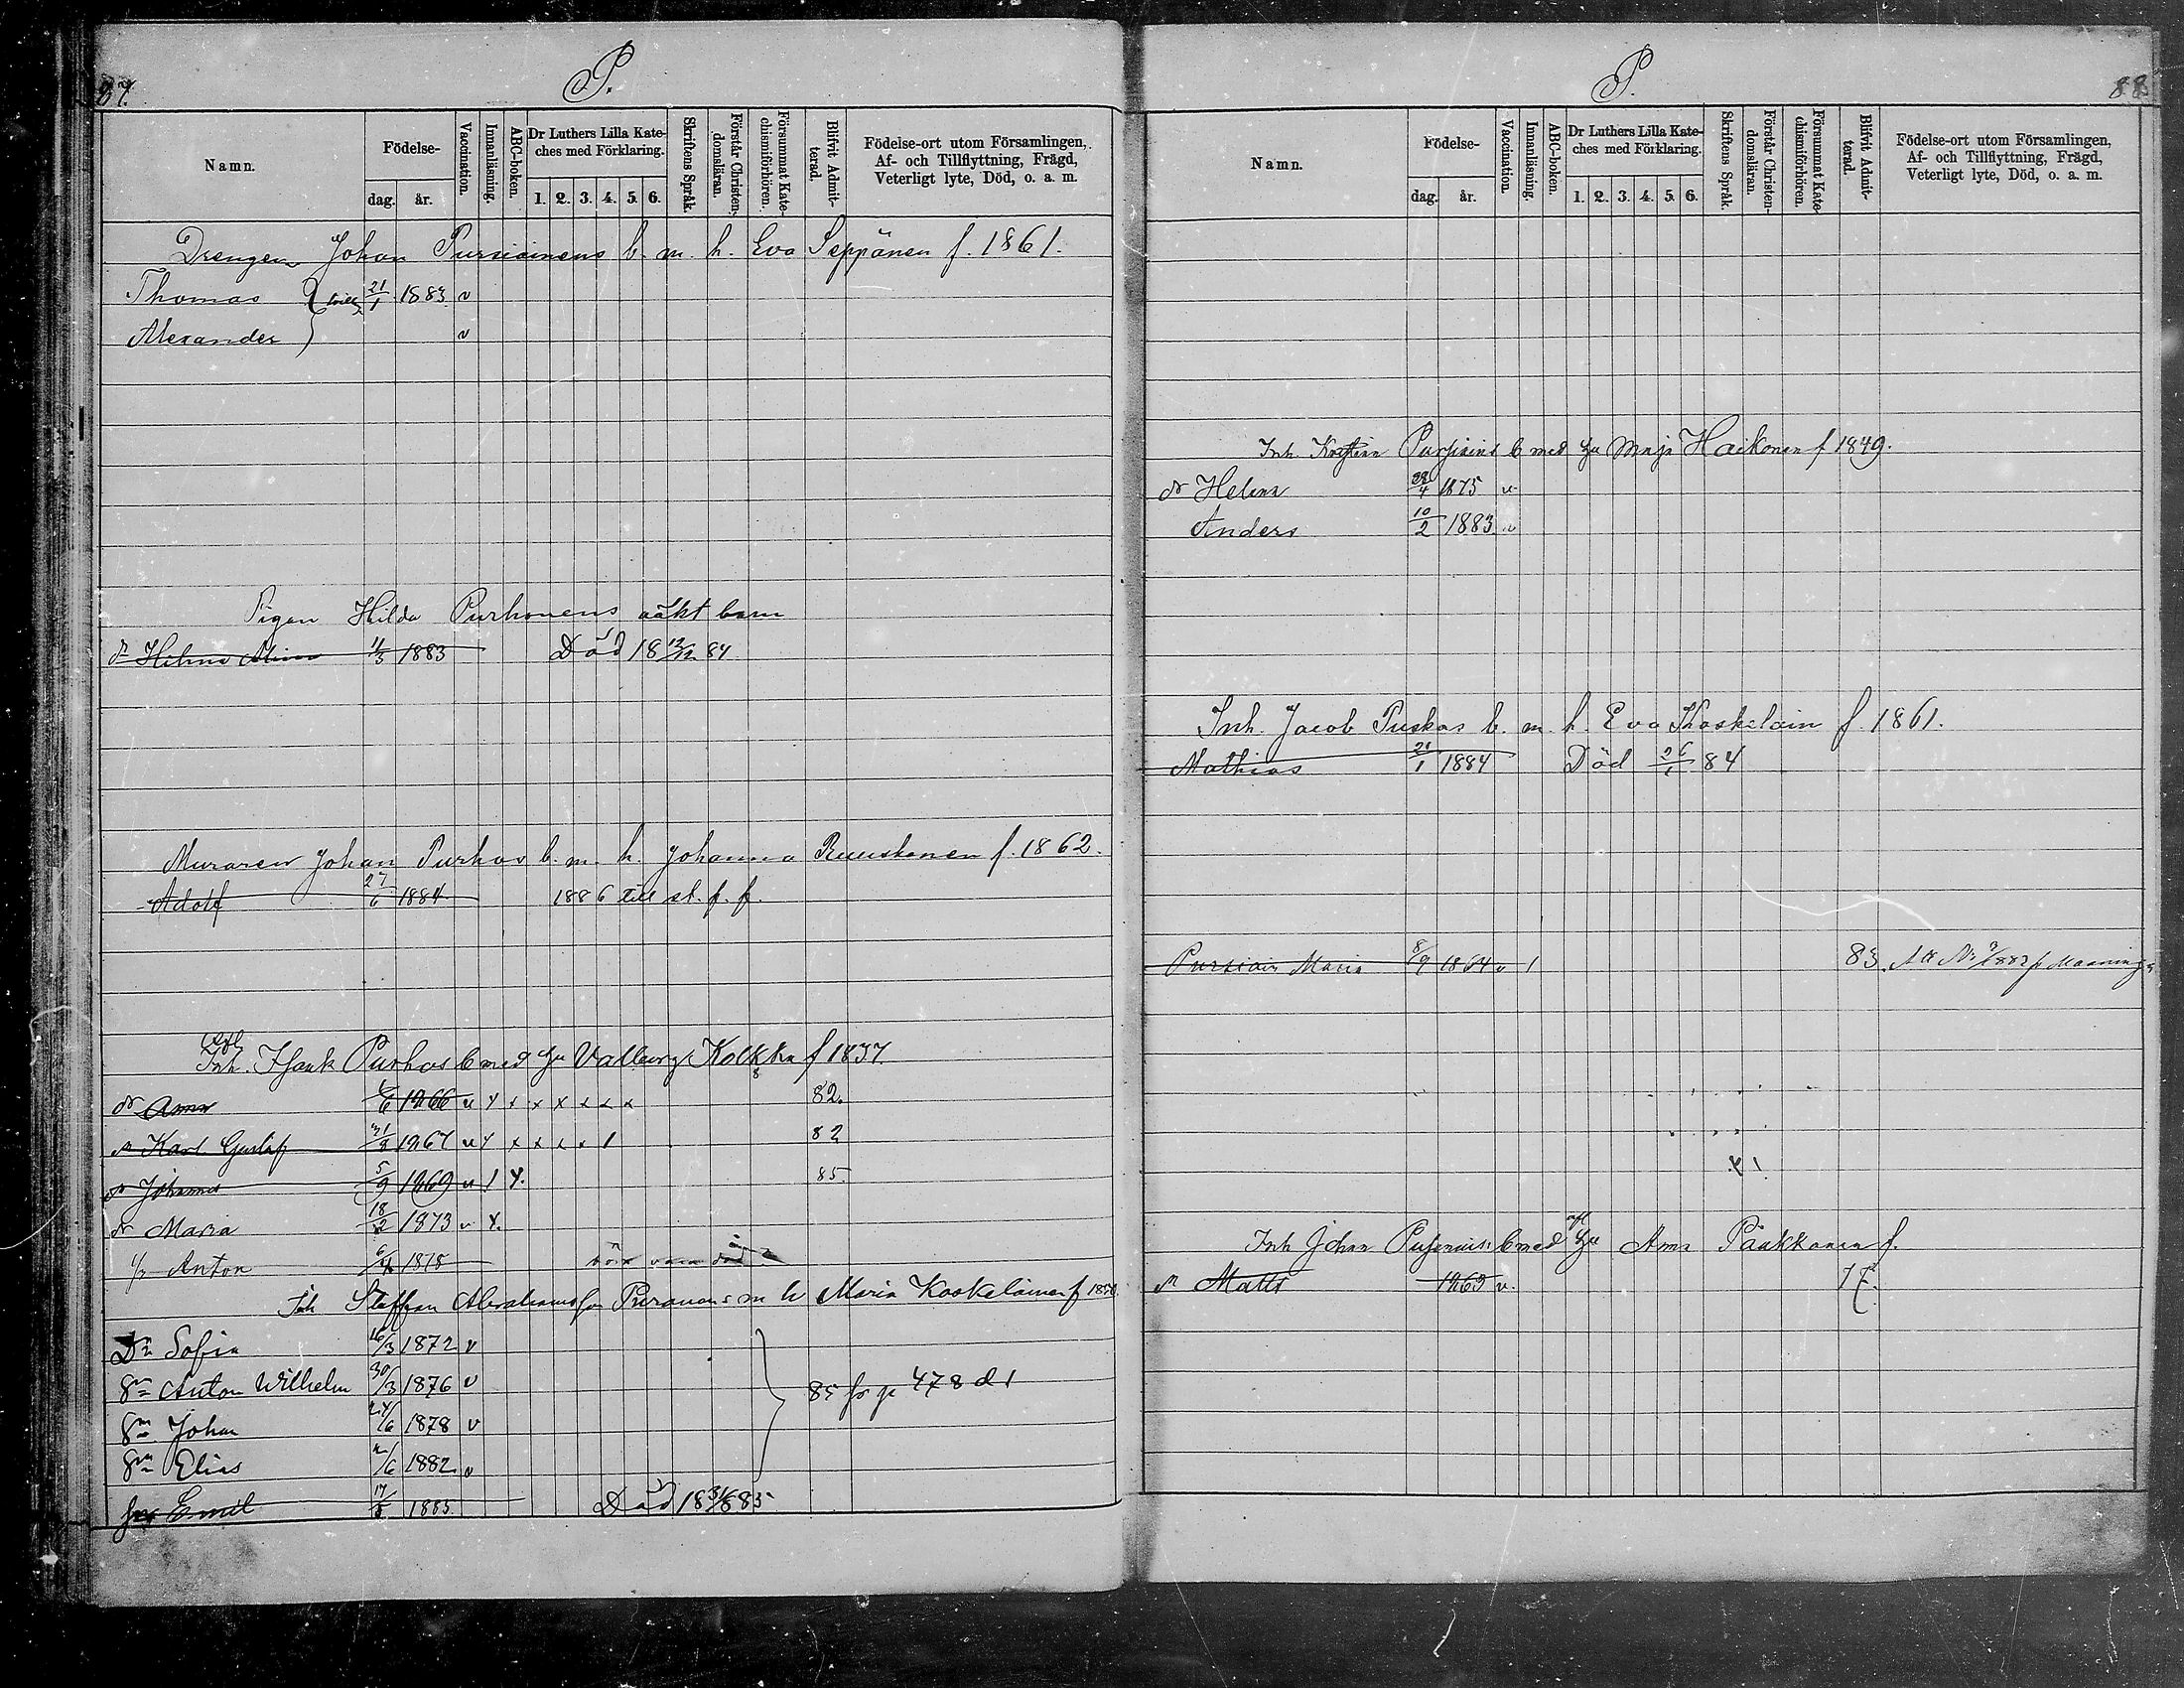 87.
P.
Namn.
Födelse-
dag.
år.
Vaccination.
Innanläsning.
ABC-boken.
Dr Luthers Lilla Kate-
ches med Förklaring.
1. 2. 3. 4. 5. 6.
Skriftens Språk.
Förstår Christen-
domsläran.
Försummat Kate-
chismiförhören.
Blifvit Admit-
terad.
Födelse-ort utom Församlingen,
Af- och Tillflyttning, Frägd,
Veterligt lyte, Död, o. a. m.
Drengen Johan Pursiainens b. m. h. Eva Seppänen f. 1861.
Thomas 21/1 1883 v
Alexander v
Pigan Hilda Purhonens oäkt barn
1883 Död 18 12/12 84
Muraren Johan Purhos b. m. h. Johanna Ruuskanen f. 1862.
Adolf 27/6 1884 1886 till st. f. f.
Inh. Purhos b med hu Valborg Kolkka f 1837.
dr Anna 6/6 1866 v x x x x x x x 82.
Karl Gustaf 31/8 1867 v x x x x x 1 82
dr Johanna 5/9 1869 v 1 x. 85.
dr Maria 18/2 1873 v x.
Anton 1878
Inh Staffan Puranens m h Maria Koskelainen f
Dr Sofia 16/3 1872 v
Sn Anton Wilhelm 30/3 1876 v
85 fr p 478 d 1
Sn Johan 24/6 1878 v
Sn Elias 1882 v
Emil 17/5 1885. Död
P.
88
Namn.
Födelse-
dag.
år.
Vaccination.
Innanläsning.
ABC-boken.
Dr Luthers Lilla Kate-
ches med Förklaring.
1. 2. 3. 4. 5. 6.
Skriftens Språk.
Förstår Christen-
domsläran.
Försummat Kate-
chismiförhören.
Blifvit Admit-
terad.
Födelse-ort utom Församlingen,
Af- och Tillflyttning, Frägd,
Veterligt lyte, Död, o. a. m.
Inh. b med hu Maja Haikonen f 1849.
dr Helena 1875 v
Anders 10/2 1883 v
Inh. Jacob Puskas b. m. h. Eva Koskelain f. 1861.
Mathias 21/1 1884 Död 26/1 84
Pursiain Maria 8/9 1864 v 1 83.
x 1
Inh Johan b med hu Anna Päükkonen f.
Matts 1869 v.